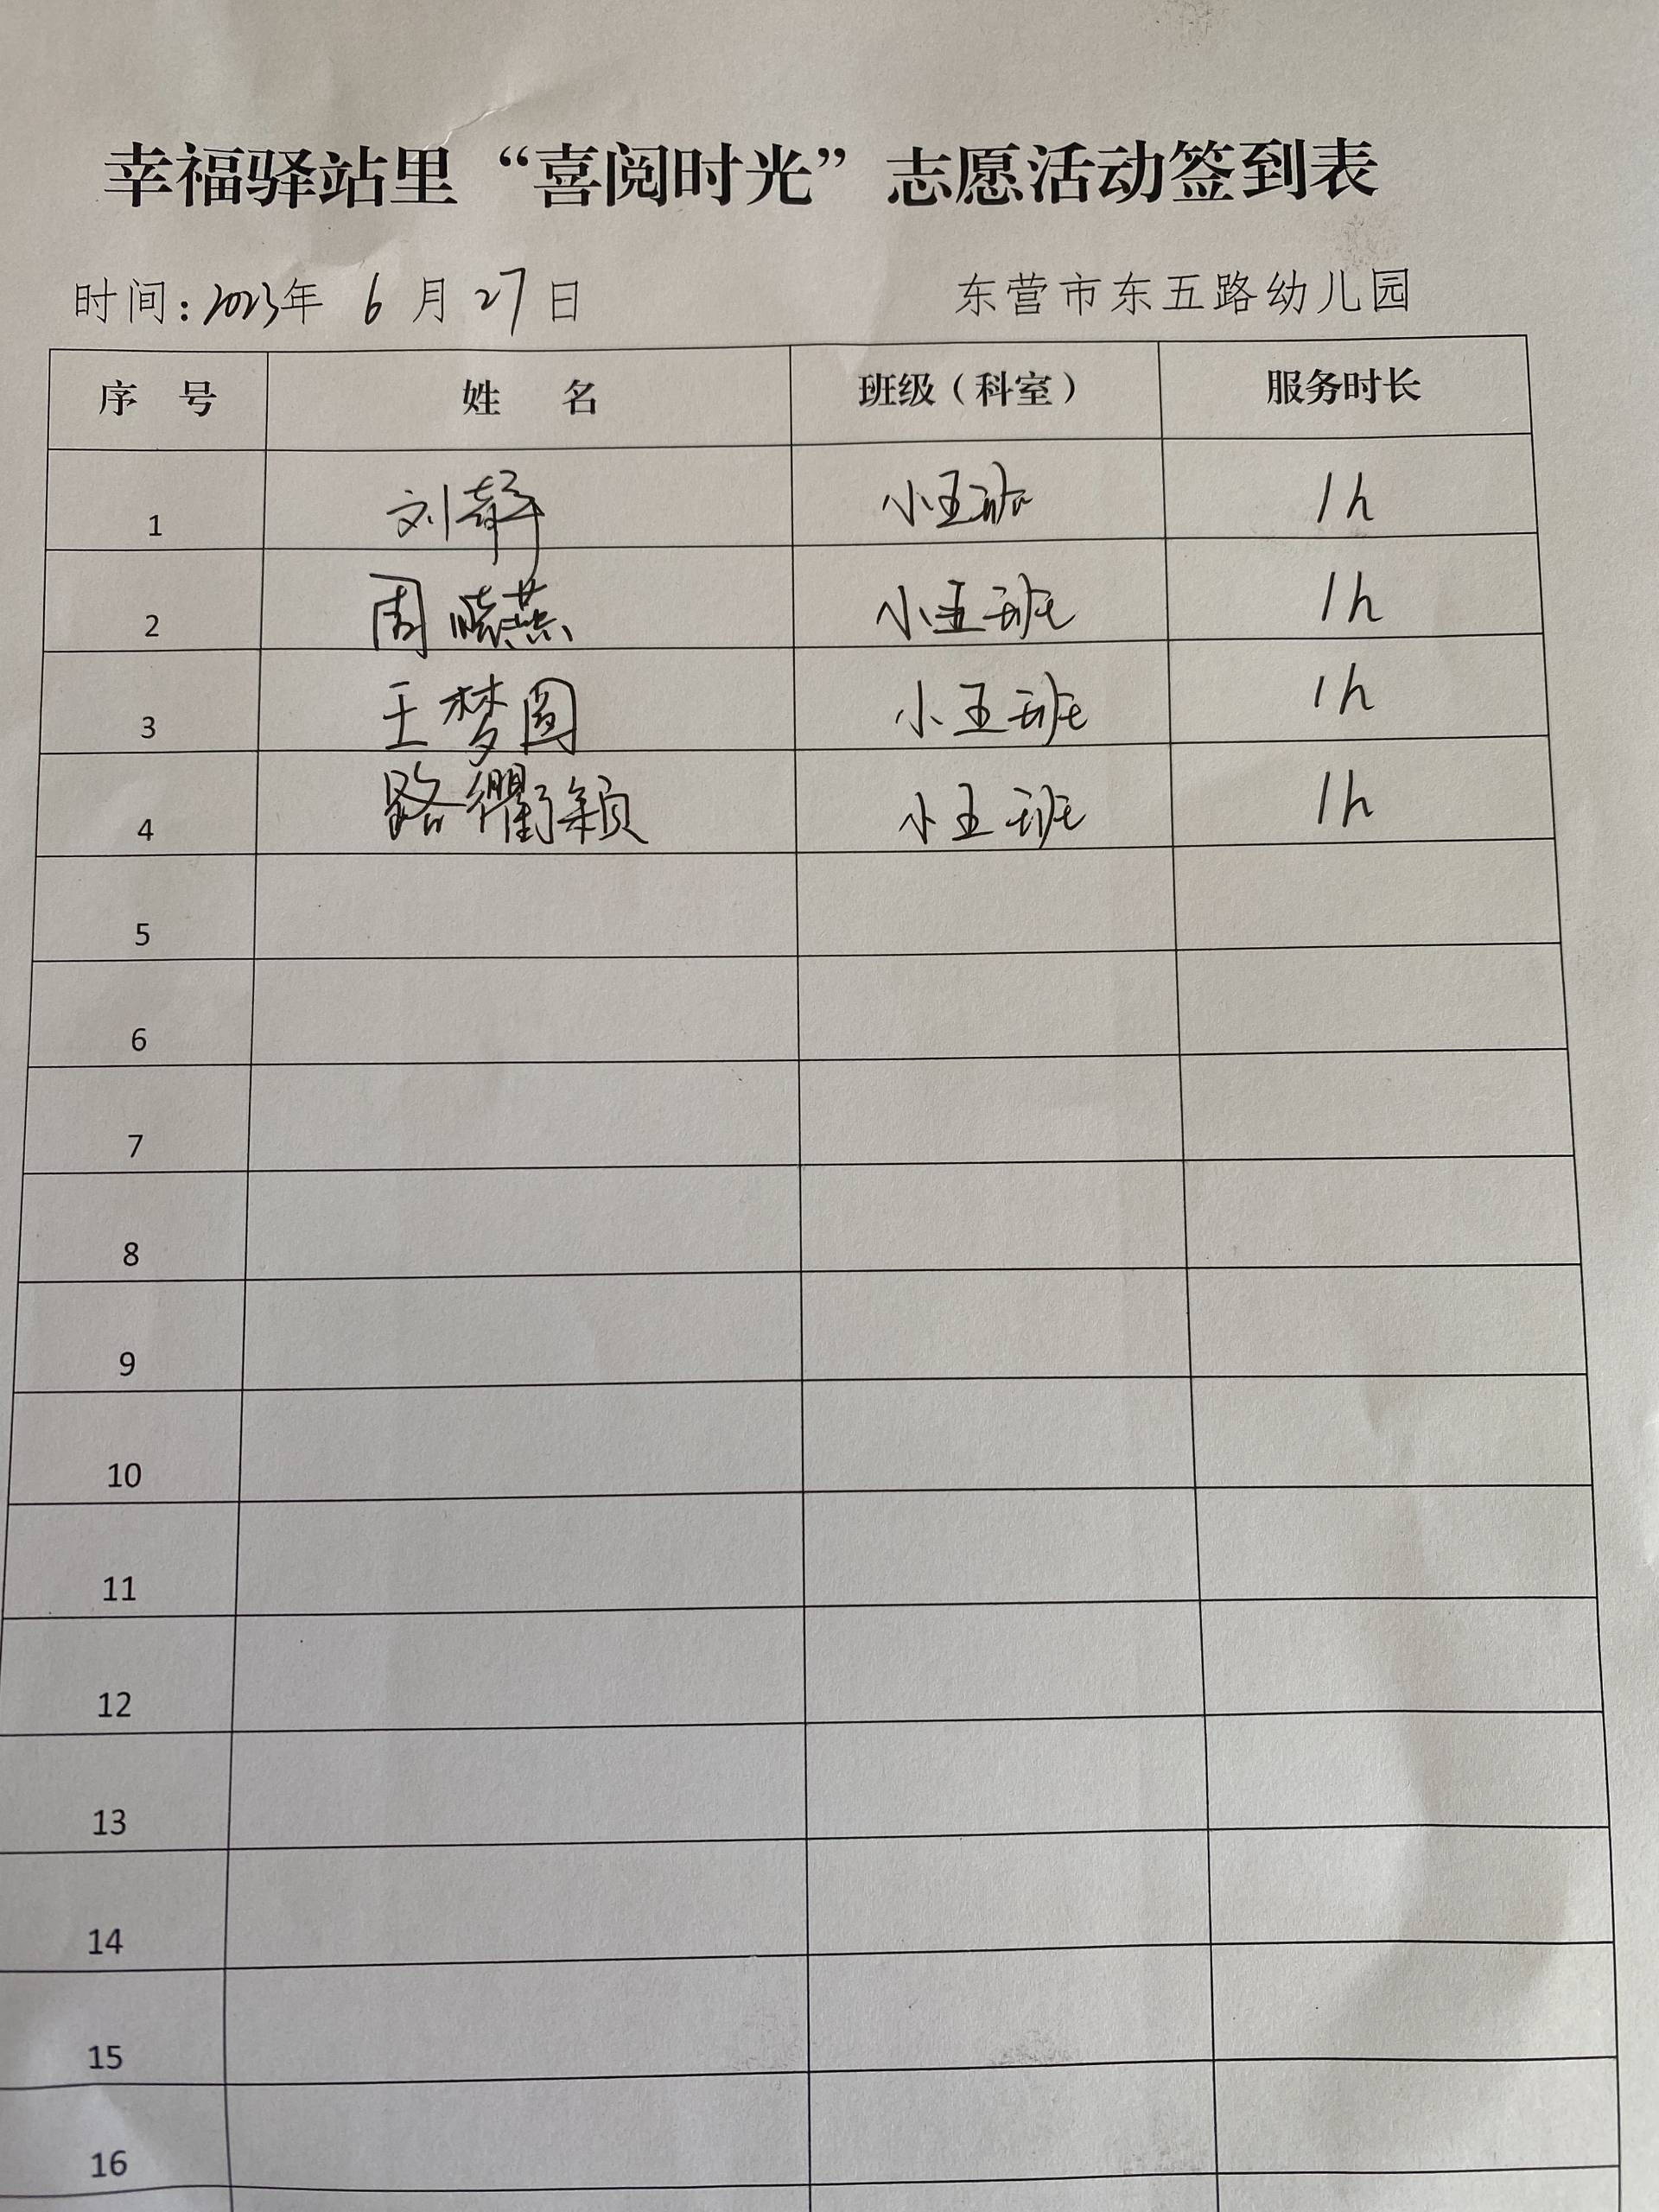 幸福驿站里“喜阅时光”志愿活动签到表
时间:2023年 6 月 27 日 东营市东五路幼儿园
序 号 姓 名 班级(科室) 服务时长
1 刘静 小五班 1h
2 周晓燕 小五班 1h
3 王梦圆 小五班 1h
4 路衢颖 小五班 1h
5
6
7
8
9
10
11
12
13
14
15
16